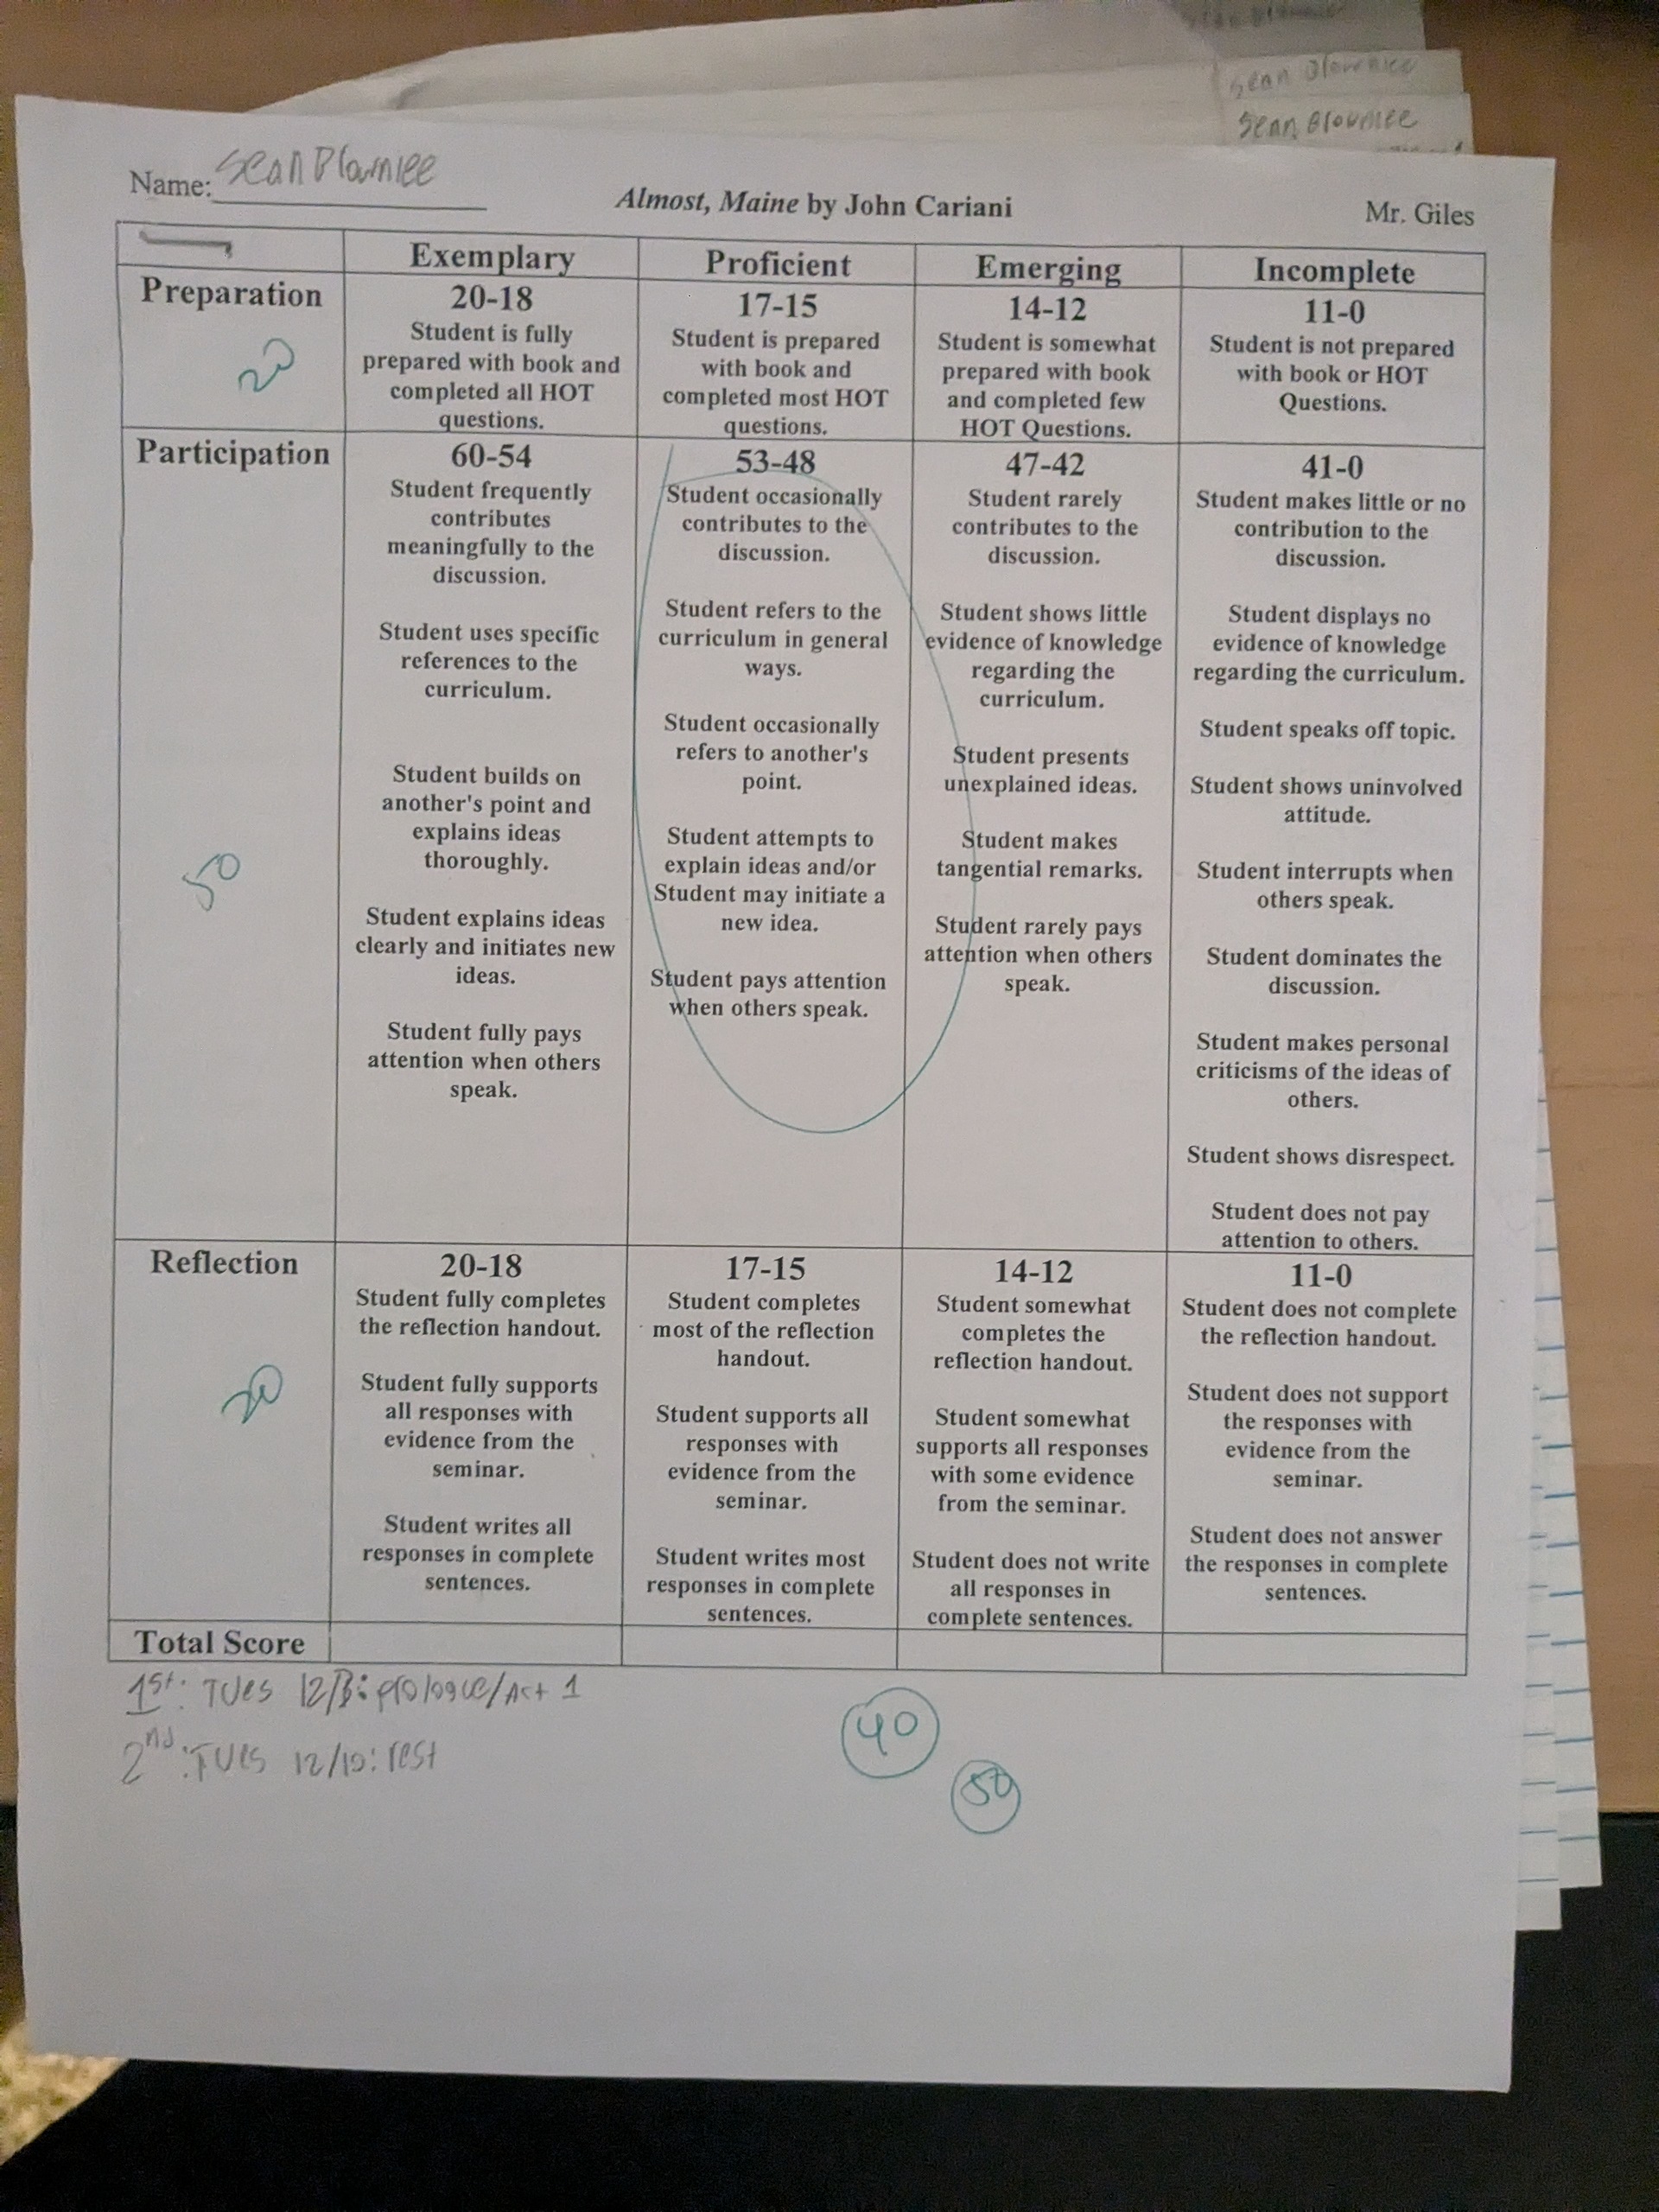 Sean Brownlee
Sean Brownlee
Name: Sean Brownlee
Almost, Maine by John Cariani
Mr. Giles
Exemplary
Proficient
Emerging
Incomplete
Preparation
20
20-18
Student is fully
prepared with book and
completed all HOT
questions.
17-15
Student is prepared
with book and
completed most HOT
questions.
14-12
Student is somewhat
prepared with book
and completed few
HOT Questions.
11-0
Student is not prepared
with book or HOT
Questions.
Participation
50
60-54
Student frequently
contributes
meaningfully to the
discussion.
Student uses specific
references to the
curriculum.
Student builds on
another's point and
explains ideas
thoroughly.
Student explains ideas
clearly and initiates new
ideas.
Student fully pays
attention when others
speak.
53-48
Student occasionally
contributes to the
discussion.
Student refers to the
curriculum in general
ways.
Student occasionally
refers to another's
point.
Student attempts to
explain ideas and/or
Student may initiate a
new idea.
Student pays attention
when others speak.
47-42
Student rarely
contributes to the
discussion.
Student shows little
evidence of knowledge
regarding the
curriculum.
Student presents
unexplained ideas.
Student makes
tangential remarks.
Student rarely pays
attention when others
speak.
41-0
Student makes little or no
contribution to the
discussion.
Student displays no
evidence of knowledge
regarding the curriculum.
Student speaks off topic.
Student shows uninvolved
attitude.
Student interrupts when
others speak.
Student dominates the
discussion.
Student makes personal
criticisms of the ideas of
others.
Student shows disrespect.
Student does not pay
attention to others.
Reflection
20
20-18
Student fully completes
the reflection handout.
Student fully supports
all responses with
evidence from the
seminar.
Student writes all
responses in complete
sentences.
17-15
Student completes
most of the reflection
handout.
Student supports all
responses with
evidence from the
seminar.
Student writes most
responses in complete
sentences.
14-12
Student somewhat
completes the
reflection handout.
Student somewhat
supports all responses
with some evidence
from the seminar.
Student does not write
all responses in
complete sentences.
11-0
Student does not complete
the reflection handout.
Student does not support
the responses with
evidence from the
seminar.
Student does not answer
the responses in complete
sentences.
Total Score
1st: TUes 12/3: prologue/Act 1
2nd: TUes 12/10: rest
40
50